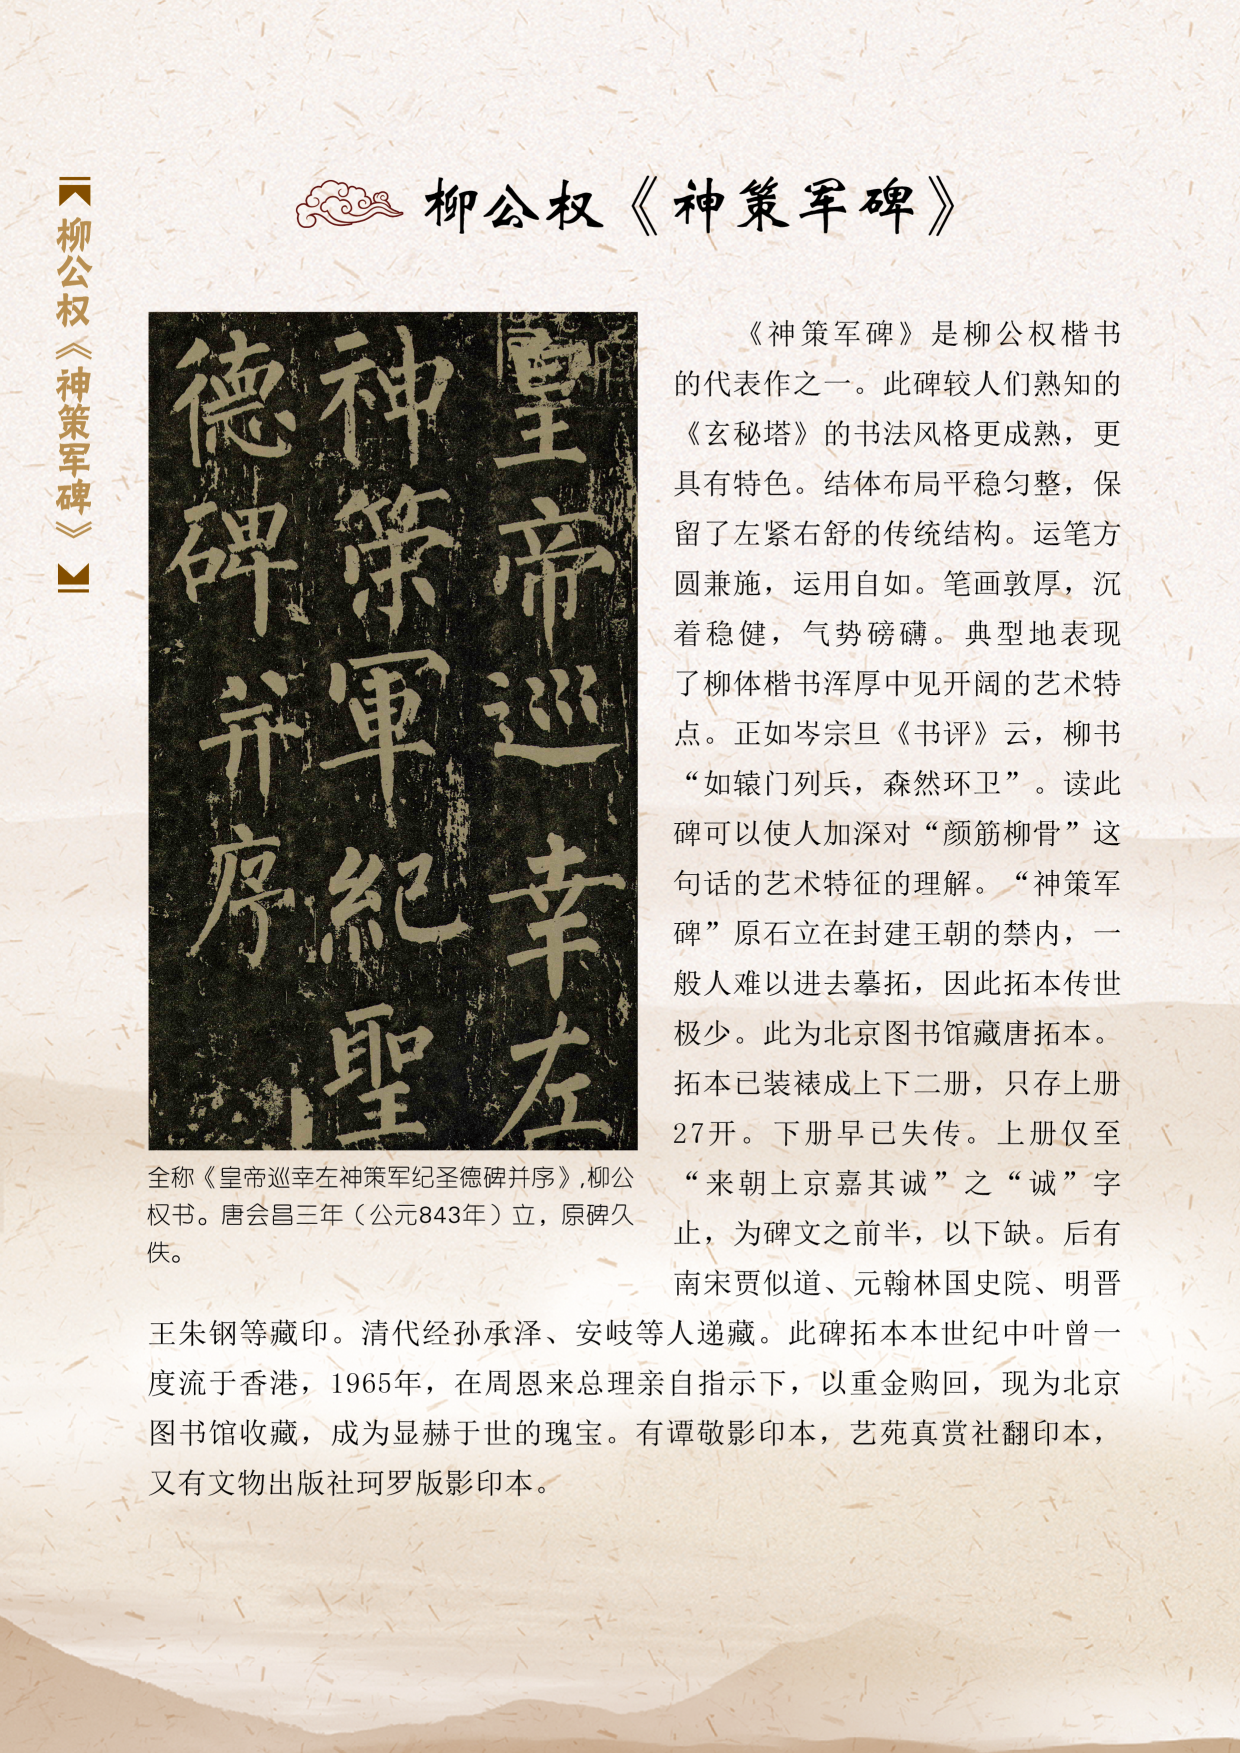 柳公权《神策军碑》
柳公权《神策军碑》
皇帝巡幸左
神策軍紀聖
德碑并序
全称《皇帝巡幸左神策军纪圣德碑并序》,柳公
权书。唐会昌三年（公元843年）立，原碑久
佚。
《神策军碑》是柳公权楷书
的代表作之一。此碑较人们熟知的
《玄秘塔》的书法风格更成熟，更
具有特色。结体布局平稳匀整，保
留了左紧右舒的传统结构。运笔方
圆兼施，运用自如。笔画敦厚，沉
着稳健，气势磅礴。典型地表现
了柳体楷书浑厚中见开阔的艺术特
点。正如岑宗旦《书评》云，柳书
“如辕门列兵，森然环卫”。读此
碑可以使人加深对“颜筋柳骨”这
句话的艺术特征的理解。“神策军
碑”原石立在封建王朝的禁内，一
般人难以进去摹拓，因此拓本传世
极少。此为北京图书馆藏唐拓本。
拓本已装裱成上下二册，只存上册
27开。下册早已失传。上册仅至
“来朝上京嘉其诚”之“诚”字
止，为碑文之前半，以下缺。后有
南宋贾似道、元翰林国史院、明晋
王朱钢等藏印。清代经孙承泽、安岐等人递藏。此碑拓本本世纪中叶曾一
度流于香港，1965年，在周恩来总理亲自指示下，以重金购回，现为北京
图书馆收藏，成为显赫于世的瑰宝。有谭敬影印本，艺苑真赏社翻印本，
又有文物出版社珂罗版影印本。